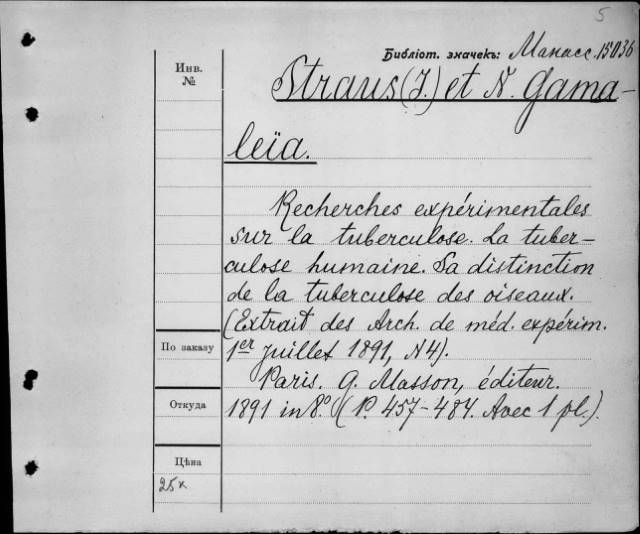 5
Библіот. значекъ: Манасс. 15036
Инв. №
Straus (J.) et N. Gama-
leïa.
Recherches expérimentales
sur la tuberculose. La tuber-
culose humaine. Sa distinction
de la tuberculose des oiseaux.
(Extrait des Arch. de méd. expérim.
По заказу
1er juillet 1891, N4).
Paris. G. Masson, éditeur.
Откуда
1891 in 8º (P. 457-484. Avec 1 pl.).
Цѣна
25к